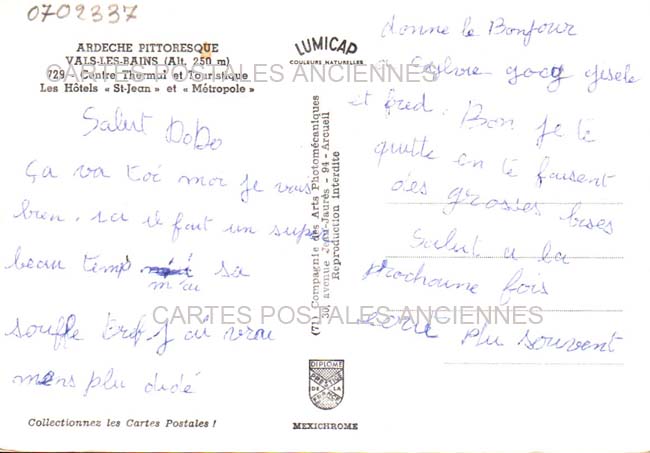 0702337
ARDECHE PITTORESQUE
VALS-LES-BAINS (Alt. 250 m)
729 - Centre Thermal et Touristique
Les Hôtels « St-Jean » et « Métropole »
LUMICAP
COULEURS NATURELLES
CARTES POSTALES ANCIENNES
Salut DoDo
Ça va toi moi je vais
bien. ici il fait un super
beau temp sa
m'ai
souffle trop j'ai vrai
mens plu didé
Collectionnez les Cartes Postales !
(71) Compagnie des Arts Photomécaniques
30, avenue Jean-Jaurès - 94 - Arcueil
Reproduction interdite
DIPLOME
PRESTIGE
DE LA
FRANCE
MEXICHROME
donne le Bonjour
a Sylvie gisele
et fred. Bon je te
quitte en te faisent
des grosses bises
Salut a la
prochaine fois
ecrie plu souvent
CARTES POSTALES ANCIENNES